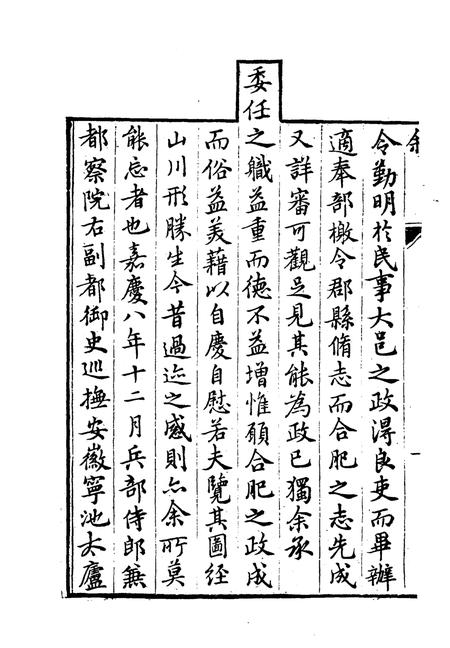 令勤明於民事大邑之政得良吏而畢辦
適奉部檄令郡縣脩志而合肥之志先成
又詳審可觀足見其能為政已獨余承
委任之職益重而德不益增惟願合肥之政成
而俗益美藉以自慶自慰若夫覽其圖經
山川形勝生今昔過迹之感則亦余所莫
能忘者也嘉慶八年十二月兵部侍郎兼
都察院右副都御史巡撫安徽寧池太廬